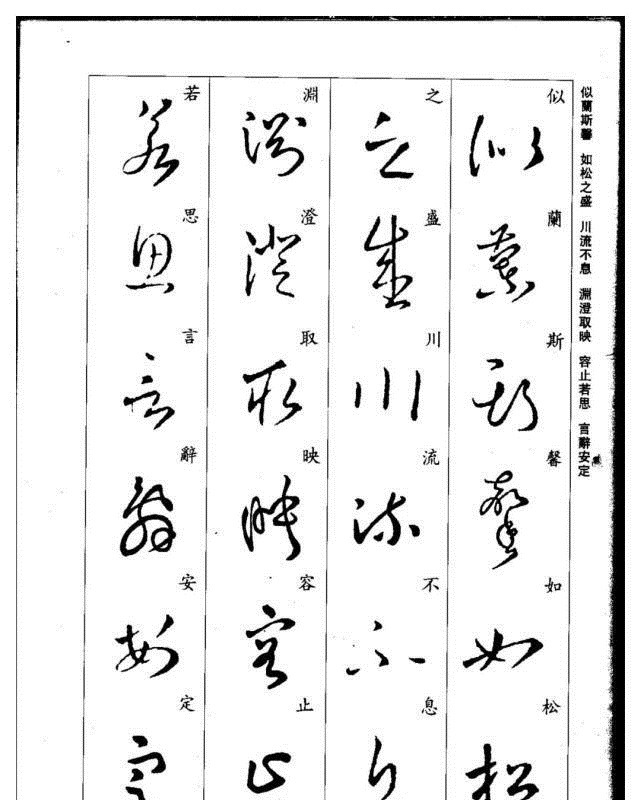 似蘭斯馨 如松之盛 川流不息 淵澄取映 容止若思 言辭安定
似蘭斯馨如松
之盛川流不息
淵澄取映容止
若思言辭安定